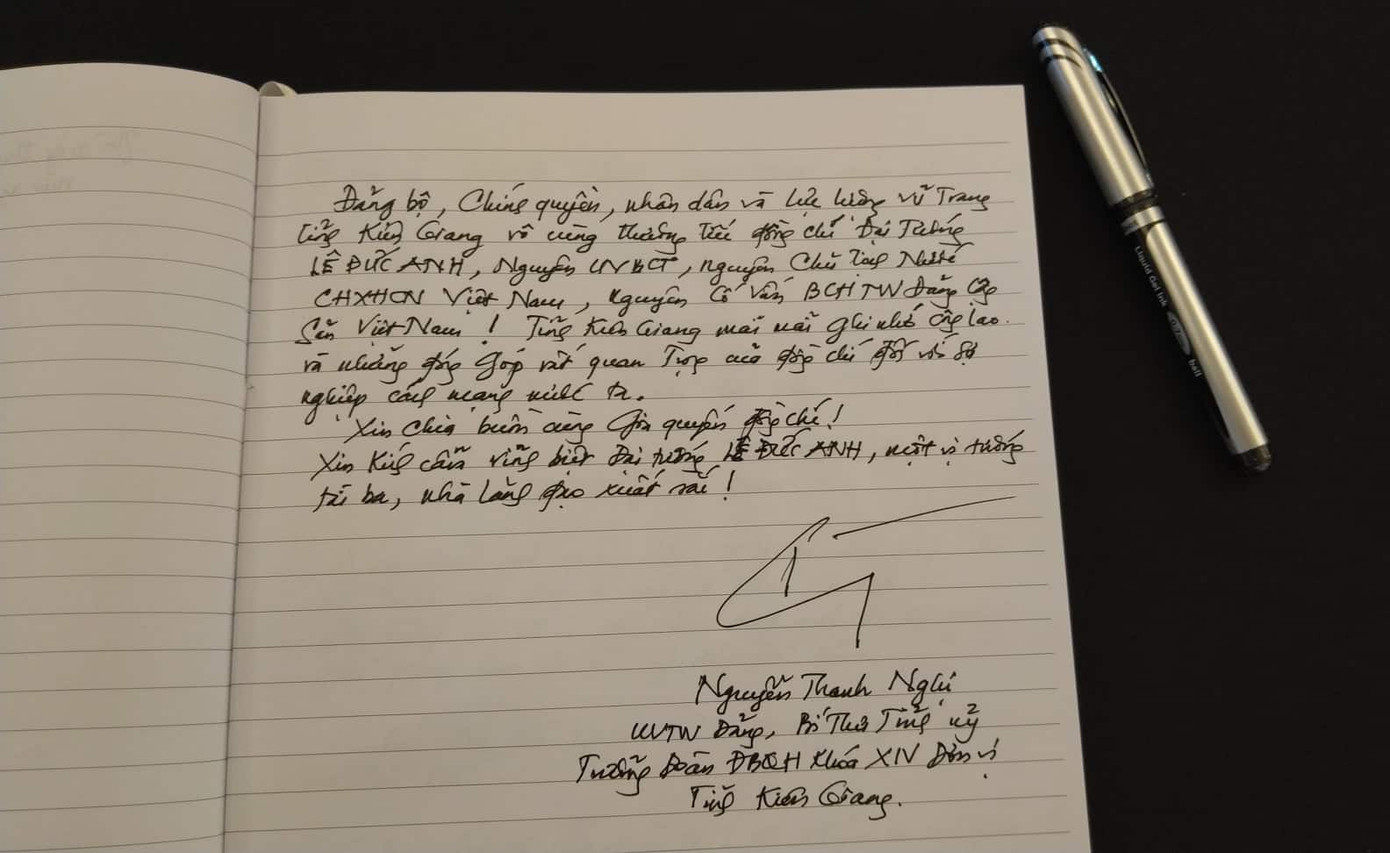 Đảng bộ, Chính quyền, nhân dân và lực lượng vũ Trang
tỉnh Kiên Giang vô cùng thương tiếc đồng chí Đại Tướng
LÊ ĐỨC ANH, Nguyên UVBCT, nguyên Chủ tịch Nước
CHXHCN Việt Nam, nguyên Cố vấn BCHTW Đảng Cộng
Sản Việt Nam! Tỉnh Kiên Giang mãi mãi ghi nhớ công lao
và những đóng góp rất quan Trọng của đồng chí đối với sự
nghiệp cách mạng nước ta.
Xin chia buồn cùng Gia quyến đồng chí!
Xin Kính cẩn vĩnh biệt Đại tướng LÊ ĐỨC ANH, một vị tướng
tài ba, nhà lãnh đạo xuất sắc!
Nguyễn Thanh Nghị
UVTW Đảng, Bí Thư Tỉnh uỷ
Trưởng Đoàn ĐBQH Khóa XIV Đơn vị
Tỉnh Kiên Giang.
Liquid Gel Ink